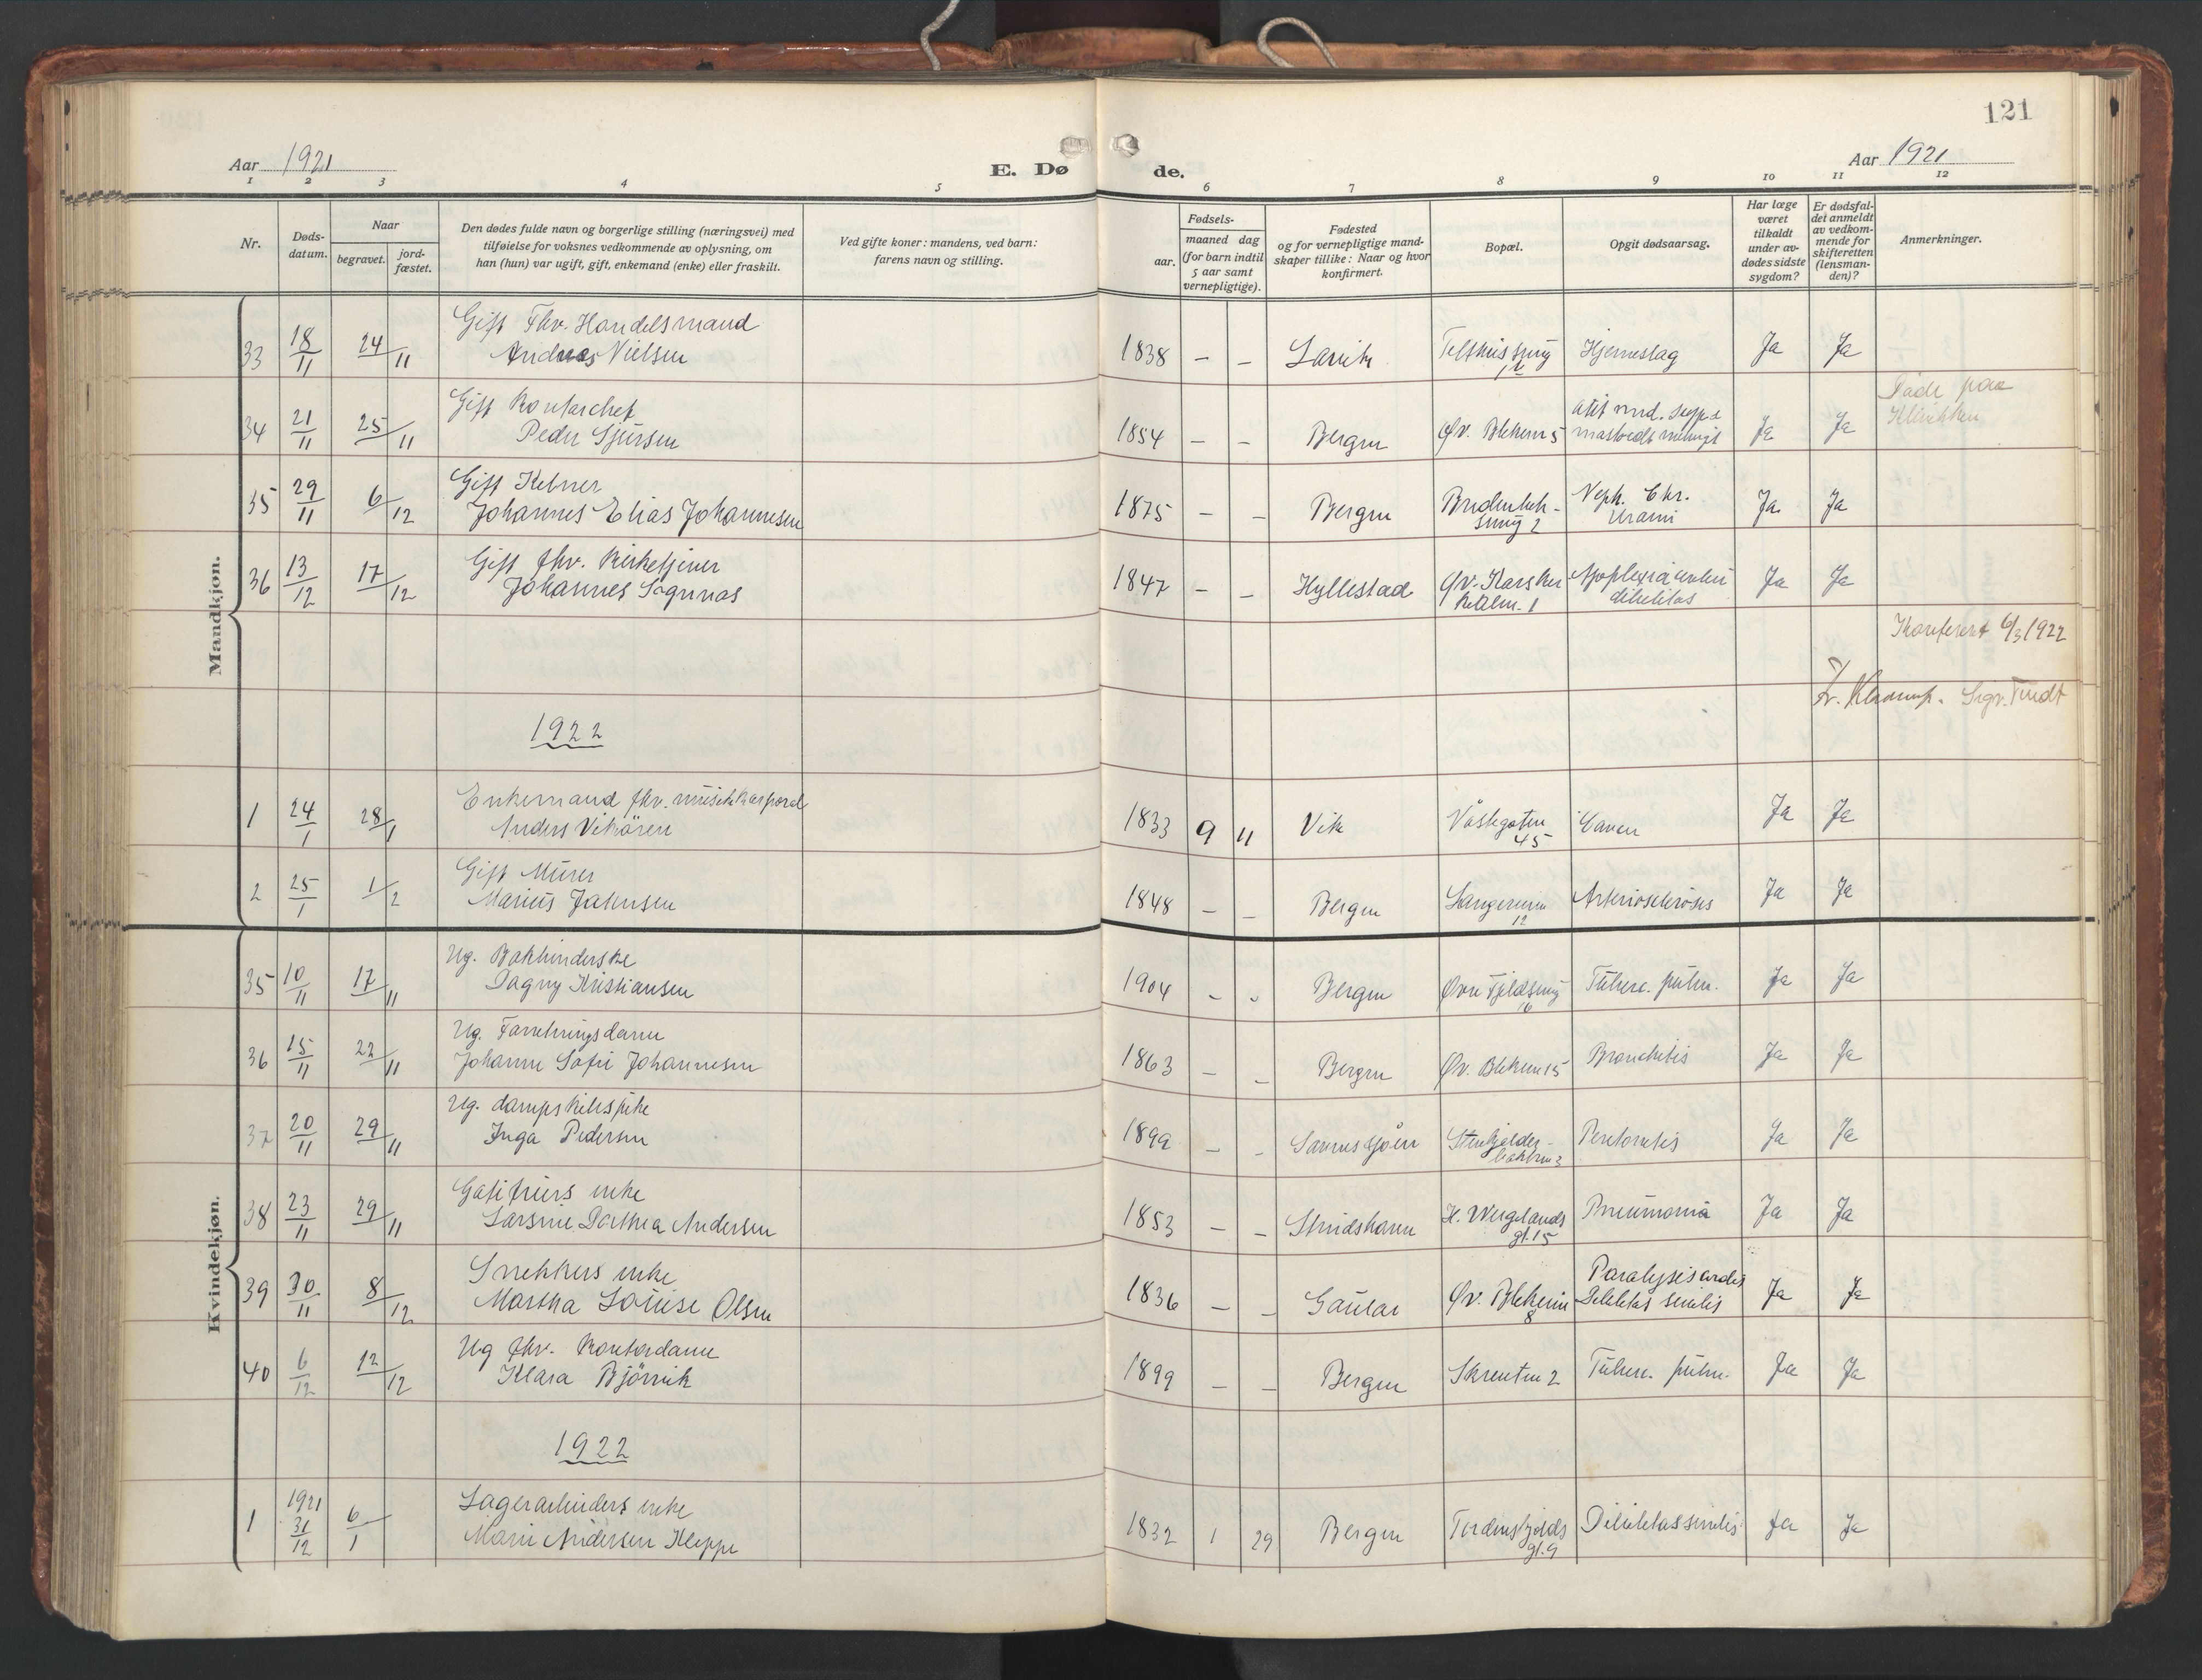 121
Aar 1921
E. Døde.
Aar 1921
1 2 3 4 5 6 7 8 9 10 11 12
Nr.
Døds-
datum.
Naar
begravet.
jord-
fæstet.
Den dødes fulde navn og borgerlige stilling (næringsvei) med
tilføielse for voksnes vedkommende av oplysning, om
han (hun) var ugift, gift, enkemand (enke) eller fraskilt.
Ved gifte koner: mandens, ved barn:
farens navn og stilling.
Fødsels-
aar.
maaned dag
(for barn indtil
5 aar samt
vernepligtige).
Fødested
og for vernepligtige mand-
skaper tillike: Naar og hvor
konfirmert.
Bopæl.
Opgit dødsaarsag.
Har læge
været
tilkaldt
under av-
dødes sidste
sygdom?
Er dødsfal-
det anmeldt
av vedkom-
mende for
skifteretten
(lensman-
den)?
Anmerkninger.
Mandkjøn.
Gift Fhv. Handelsmand
33 18/11 24/11 Andreas Nielsen 1838 – – Larvik Hjerneslag Ja Ja
Gift Kontorchef
34 21/11 25/11 Peder Sjursen 1854 – – Bergen Øv. Blekevn 5 Ja Ja
Døde paa
Klinikken
Gift Kelner
35 29/11 6/12 Johannes Elias Johannesen 1875 – – Bergen Neph. Chr.
Urämi Ja Ja
Gift fhv. Kirketjener
36 13/12 17/12 Johannes Sognnæs 1847 – – Hyllestad Apoplexia cerebri
debilitas Ja Ja
Konferert 6/3 1922
1922
Enkemand fhv. musikkorporal
1 24/1 28/1 Anders Vikören 1833 9 11 Vik
45 Cancer Ja Ja
Gift Murer
2 25/1 1/2 Marius Jakobsen 1848 – – Bergen
12 Arteriosclerosis Ja Ja
Kvindekjøn.
Ug. Bokbinderske
35 10/11 17/11 Dagny Kristiansen 1904 – – Bergen Øvre Fjeldsmug
16 Tuberc. pulm. Ja Ja
Ug. Forretningsdame
36 15/11 22/11 Johanne Sofie Johannesen 1863 – – Bergen Øv. Blekevn 15 Bronchitis Ja Ja
Ug. dampskibspike
37 20/11 29/11 Inga Pedersen 1899 – – Sannesjöen Peretonitis Ja Ja
Enke
38 23/11 29/11 Larsine Dorthea Andersen 1853 – – Strudshavn H. Wergelands
gt. 15 Pneumonia Ja Ja
Snekkers enke
39 30/11 8/12 Martha Louise Olsen 1836 – – Gaular Øv. Blekevn
8 Paralysis cordis
Debilitas senilis Ja Ja
Ug fhv. Kontordame
40 6/12 12/12 Klara Bjørvik 1899 – – Bergen Skreuten 2 Tuberc. pulm. Ja Ja
1922
Lagerarbeiders enke
1 1921 31/12 6/1 Marie Andersen Kleppe 1832 1 29 Bergen Tordenskjolds
gt. 9 Debilitas senilis Ja Ja